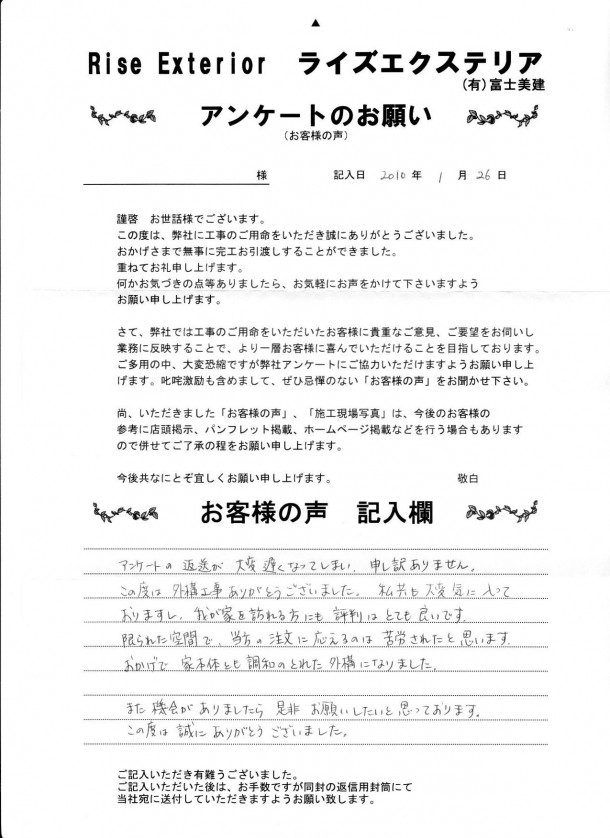 ▲
Rise Exterior ライズエクステリア
(有)富士美建
アンケートのお願い
(お客様の声)
様 記入日 2010 年 1 月 26 日
謹啓 お世話様でございます。
この度は、弊社に工事のご用命をいただき誠にありがとうございました。
おかげさまで無事に完工お引渡しすることができました。
重ねてお礼申し上げます。
何かお気づきの点等ありましたら、お気軽にお声をかけて下さいますよう
お願い申し上げます。
さて、弊社では工事のご用命をいただいたお客様に貴重なご意見、ご要望をお伺いし
業務に反映することで、より一層お客様に喜んでいただけることを目指しております。
ご多用の中、大変恐縮ですが弊社アンケートにご協力いただけますようお願い申し上
げます。叱咤激励も含めまして、ぜひ忌憚のない「お客様の声」をお聞かせ下さい。
尚、いただきました「お客様の声」、「施工現場写真」は、今後のお客様の
参考に店頭掲示、パンフレット掲載、ホームページ掲載などを行う場合もあります
ので併せてご了承の程をお願い申し上げます。
今後共なにとぞ宜しくお願い申し上げます。 敬白
お客様の声 記入欄
アンケートの 返送が 大変 遅くなってしまい、申し訳ありません。
この度は 外構工事 ありがとうございました。 私共も 大変 気に 入って
おりますし、我が家を訪れる方にも 評判は とても 良いです。
限られた空間で、当方の 注文に 応えるのは 苦労されたと 思います。
おかげで 家本体とも 調和のとれた 外構になりました。
また 機会が ありましたら 是非 お願いしたいと 思っております。
この度は 誠に ありがとう ございました。
ご記入いただき有難うございました。
ご記入いただいた後は、お手数ですが同封の返信用封筒にて
当社宛に送付していただきますようお願い致します。